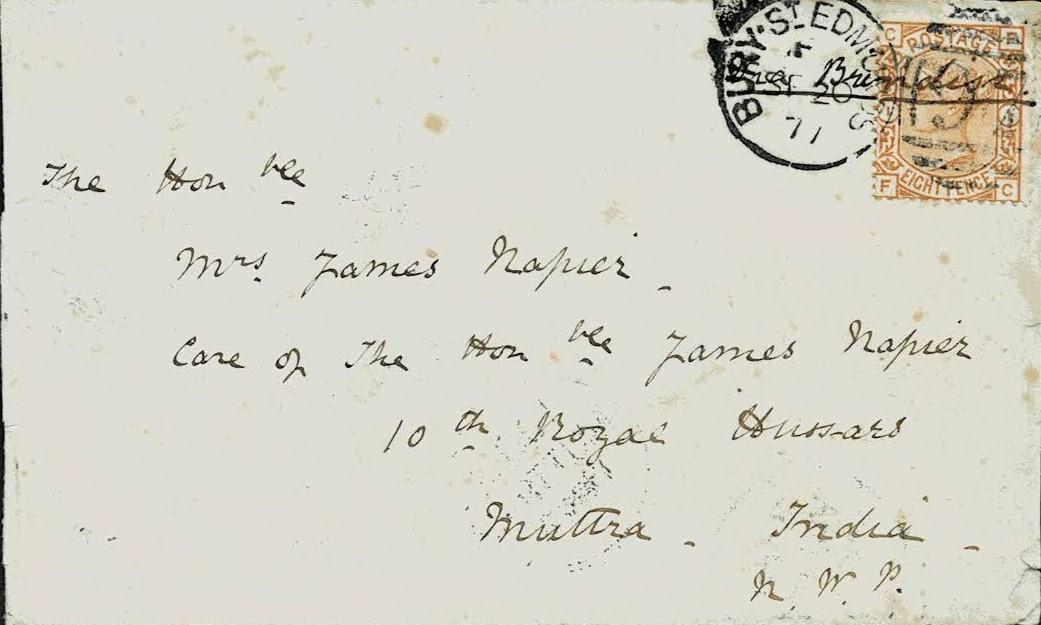 BURY·ST EDMUNDS
SP 20
77
Via Brindisi
C F
POSTAGE
EIGHT PENCE
F C
The Honble
Mrs. James Napier
Care of The Honble James Napier
10th Royal Hussars
Muttra - India -
N. W. P.